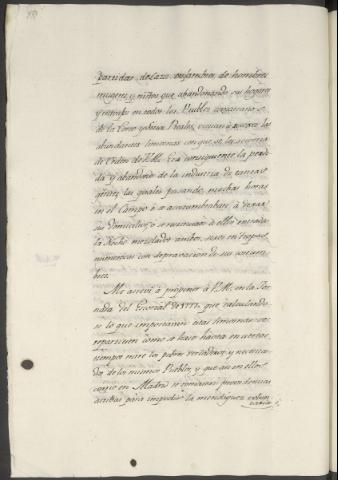 partidas de caza, enxambres de hombres
mugeres, y niños que abandonando sus hogares
y en todos los Pueblos
de la Corte y Sitios Reales, a las
abundantes limosnas con que se les socorria
de orden de V.M. Era consiguiente la perdi
da y abandono de la industria de tantas
gentes, las quales pasando muchas horas
en el Campo ó se acostumbraban à dexar
sus domicilios, ó se à ellos entrada
la Noche mezclados ambos sexos en tropas
numerosas con depravacion de sus costum
bres.
Me atrevi à proponer à V.M. en la Jor
nada del Escorial de 1777, que calculando
se lo que importaban estas limosnas, se
repartiesen como se hace hasta en
tiempo entre los pobres verdaderos, y necesita
dos de los mismos Pueblos, y que asi en ellos
como en Madrid se tomasen providencias
activas para impedir la mendiguez volun
taria